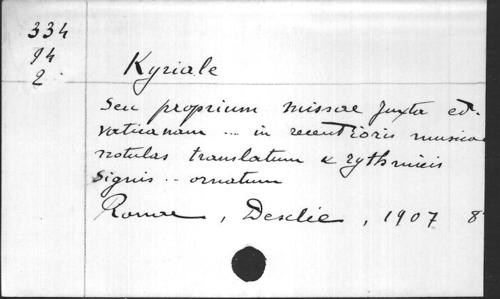 334
94
2
Kyriale
seu proprium missae juxta ed.
vaticanam ... in recentioris musicae
notulas translatum & rythmicis
signis .. ornatum
Romae, Desclée, 1907 8